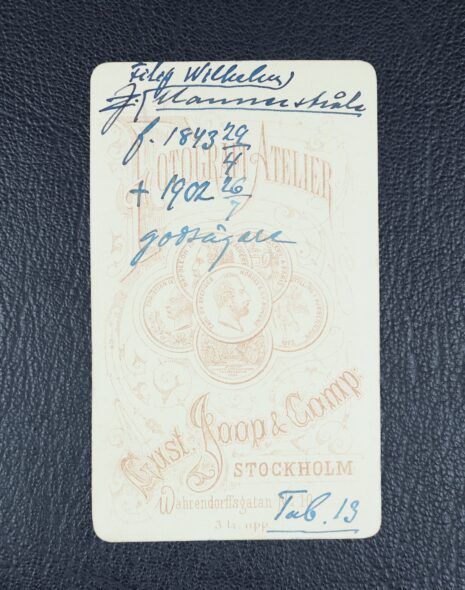 Filip Wilhelm
Mannerstråle
f. 1843 29/4
FOTOGRAFI ATELIER
+ 1902 26/7
godsägare
Gust. Joop & Comp.
STOCKHOLM
Wahrendorffsgatan
3 tr. upp.
Tab. 13